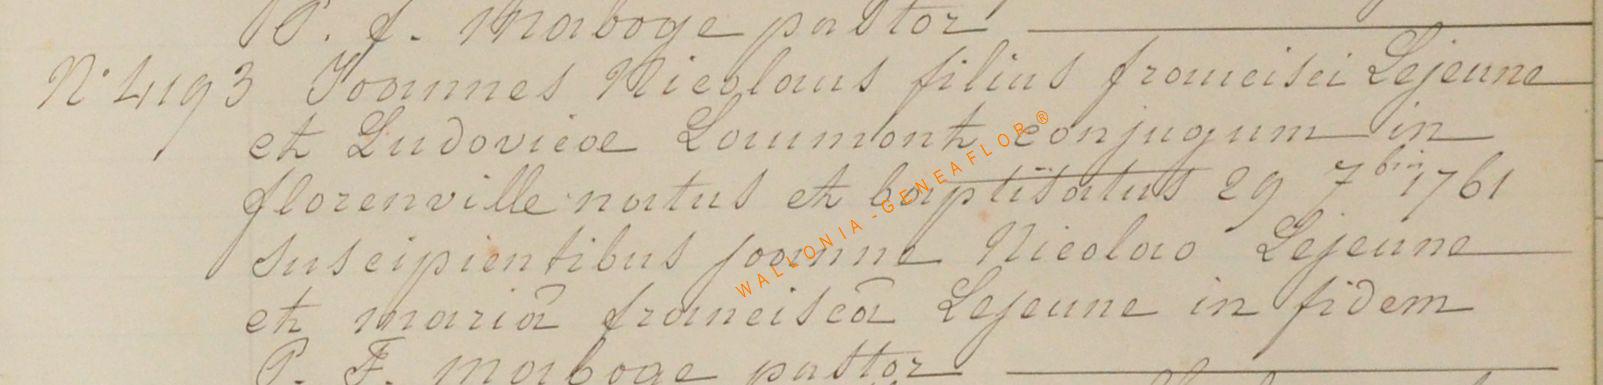 P. f. Maboge pastor
N° 4193 Joannes Nicolaus filius francisci Lejeune
et Ludovicoe Laumont conjugum in
florenville natus et baptisatus 29 7bris 1761
suscipientibus joanne Nicolao Lejeune
et mariâ franciscâ Lejeune in fidem
P. F. Maboge pastor
WALLONIA-GENEAFLOR®